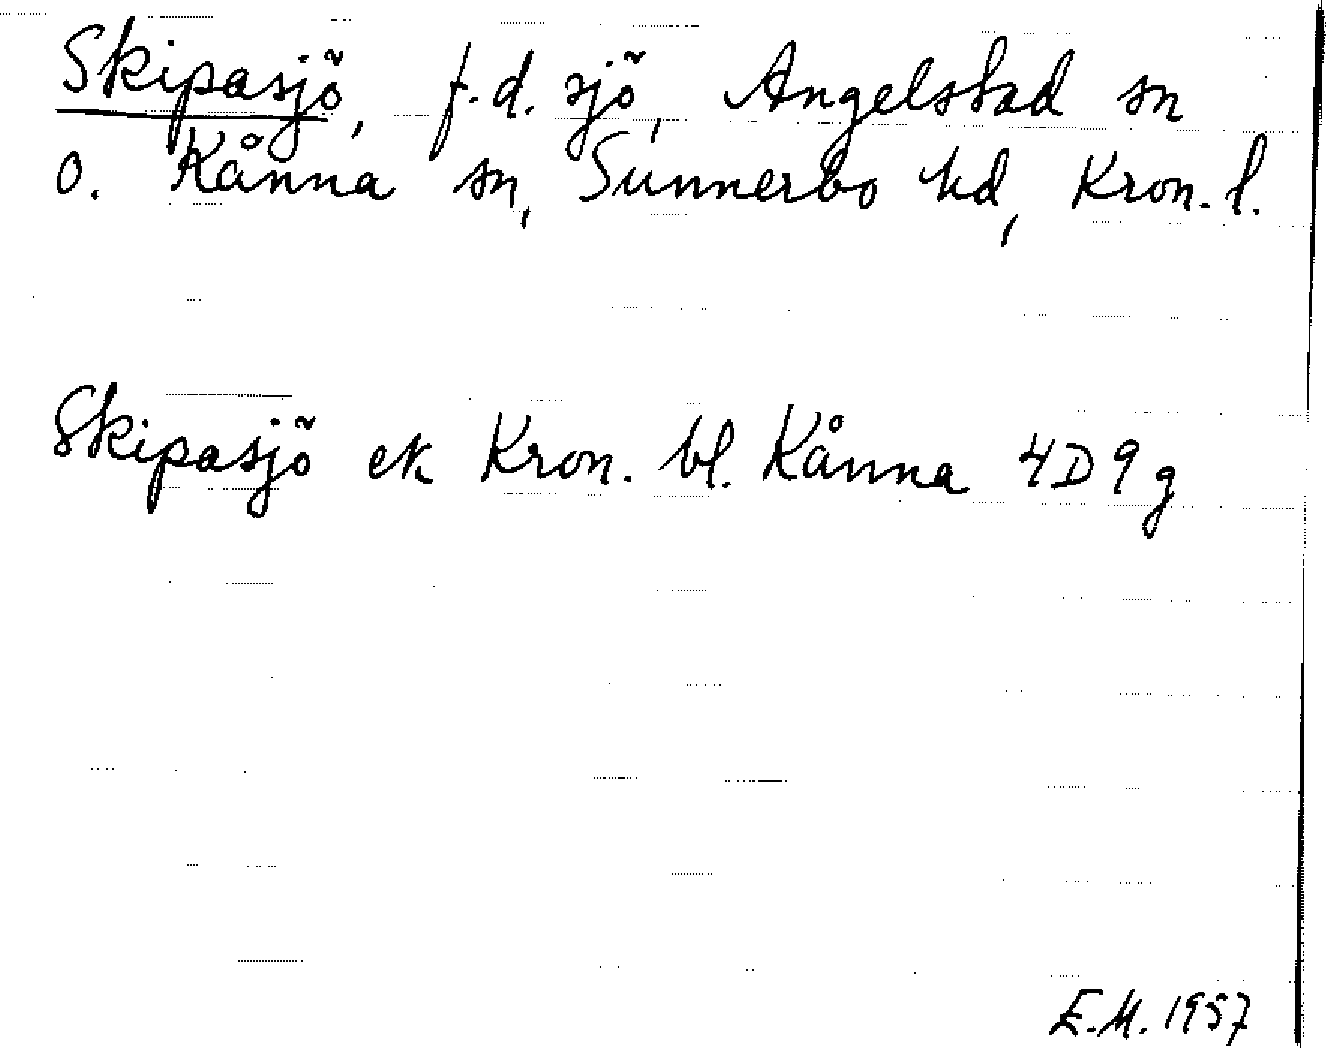 Skipasjö, f.d. sjö, Angelstad sn
o. Kånna sn, Sunnerbo hd, Kron. l.
Skipasjö ek Kron. bl. Kånna 4D9g
E.M. 1957